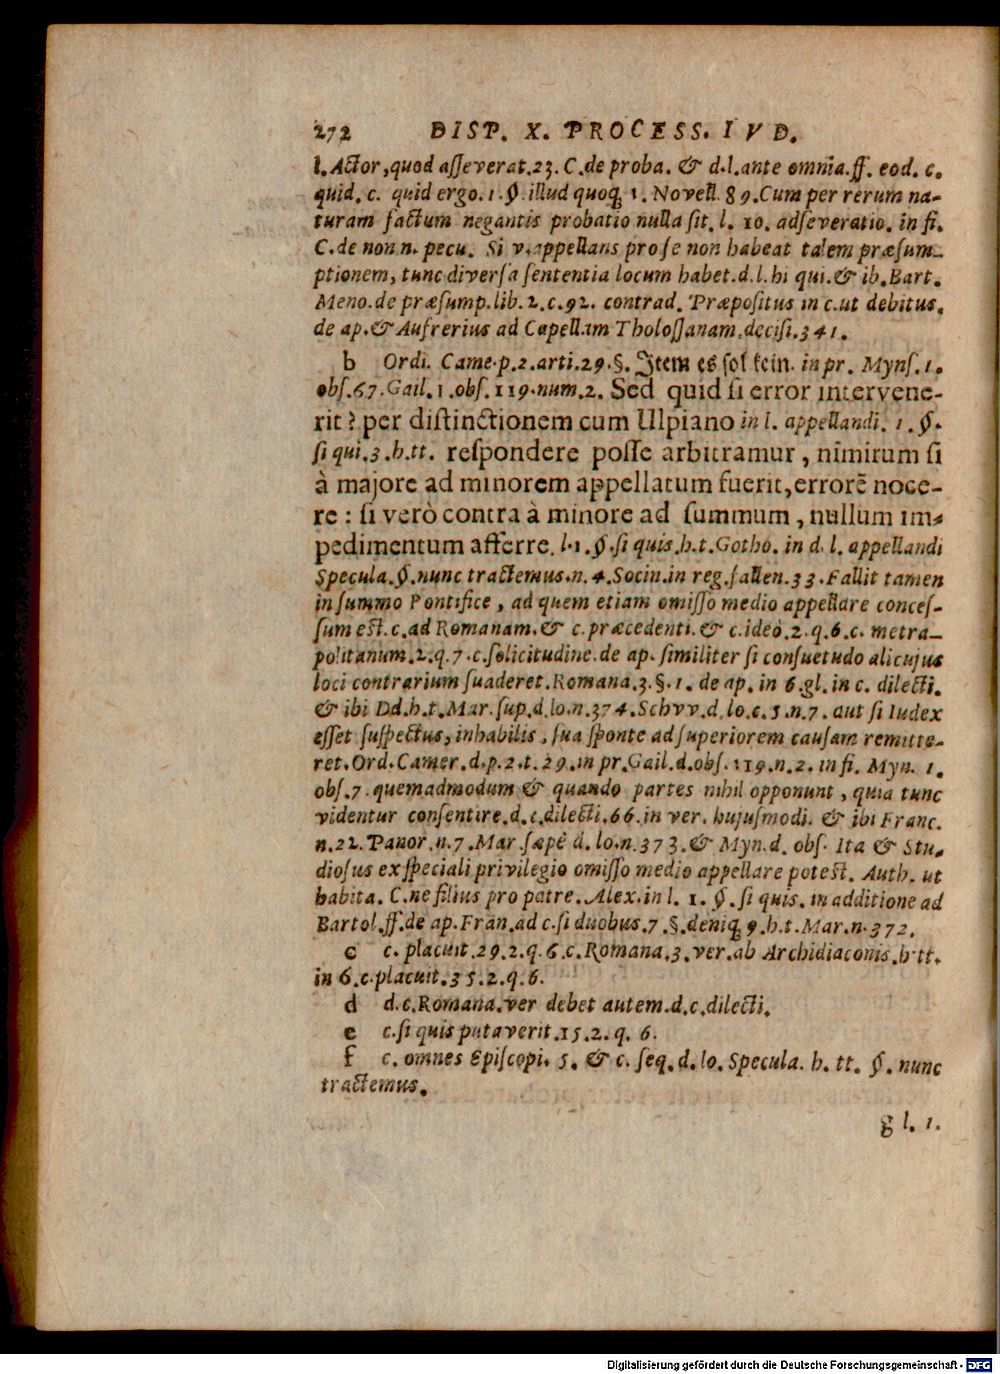 272 DISP. X. PROCESS. IVD.
l. Actor, quod asseverat.23. C. de proba. & d.l. ante omnia.ff. eod. c.
quid. c. quid ergo. 1. §. illud quoq; 1. Novell. 89. Cum per rerum na-
turam factum negantis probatio nulla sit. l. 10. adseveratio. in fi.
C. de non n. pecu. Si v. appellans pro se non habeat talem præsum-
ptionem, tunc diversa sententia locum habet. d. l. hi qui. & ib. Bart.
Meno. de præsump. lib. 2. c. 92. contrad. Præpositus in c. ut debitus.
de ap. & Aufrerius ad Capellam Tholossanam. decisi. 341.
b Ordi. Came. p. 2. arti. 29. §. Item es sol kein. in pr. Myns. 1.
obs. 67. Gail. 1. obs. 119. num. 2. Sed quid si error intervene-
rit? per distinctionem cum Ulpiano in l. appellandi. 1. §.
si qui. 3. h. tt. respondere posse arbitramur, nimirum si
à majore ad minorem appellatum fuerit, errorē noce-
re: si verò contra à minore ad summum, nullum im-
pedimentum afferre. l. 1. §. si quis. h. t. Gotho. in d. l. appellandi
Specula. §. nunc tractemus. n. 4. Socin. in reg. fallen. 33. Fallit tamen
in summo Pontifice, ad quem etiam omisso medio appellare conces-
sum est. c. ad Romanam. & c. præcedenti. & c. ideò. 2. q. 6. c. metra-
politanum. 2. q. 7. c. solicitudine. de ap. similiter si consuetudo alicujus
loci contrarium suaderet. Romana. 3. §. 1. de ap. in 6. gl. in c. dilecti.
& ibi Dd. h. t. Mar. sup. d. lo. n. 374. Schvv. d. lo. c. 5. n. 7. aut si Iudex
esset suspectus, inhabilis, sua sponte ad superiorem causam remitte-
ret. Ord. Camer. d. p. 2. t. 29. in pr. Gail. d. obs. 119. n. 2. in fi. Myn. 1.
obs. 7. quemadmodum & quando partes nihil opponunt, quia tunc
videntur consentire. d. c. dilecti. 66. in ver. hujusmodi. & ibi Franc.
n. 22. Panor. n. 7. Mar. sæpè d. lo. n. 373. & Myn. d. obs. Ita & Stu-
diosus ex speciali privilegio omisso medio appellare potest. Auth. ut
habita. C. ne filius pro patre. Alex. in l. 1. §. si quis. in additione ad
Bartol. ff. de ap. Fran. ad c. si duobus. 7. §. deniq; 9. h. t. Mar. n. 372.
c c. placuit. 29. 2. q. 6. c. Romana. 3. ver. ab Archidiaconis. h. tt.
in 6. c. placuit. 35. 2. q. 6.
d d. c. Romana. ver debet autem. d. c. dilecti.
e c. si quis putaverit. 15. 2. q. 6.
f c. omnes Episcopi. 5. & c. seq. d. lo. Specula. h. tt. §. nunc
tractemus.
g l. 1.
Digitalisierung gefördert durch die Deutsche Forschungsgemeinschaft - DFG